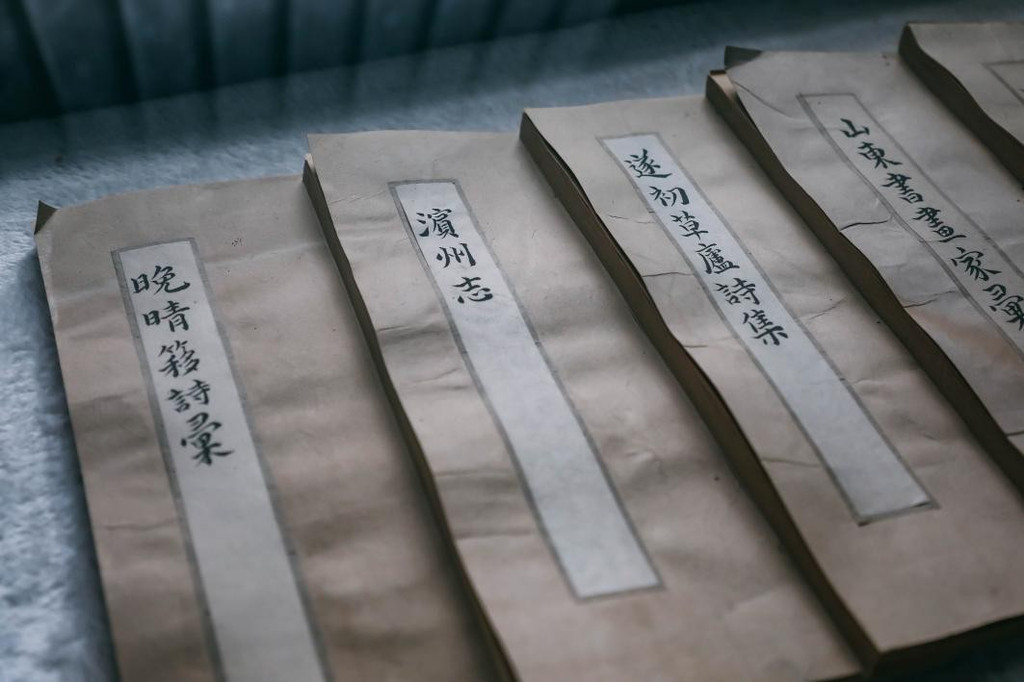 晚晴簃詩彙
濱州志
遂初草廬詩集
山東書畫家彙